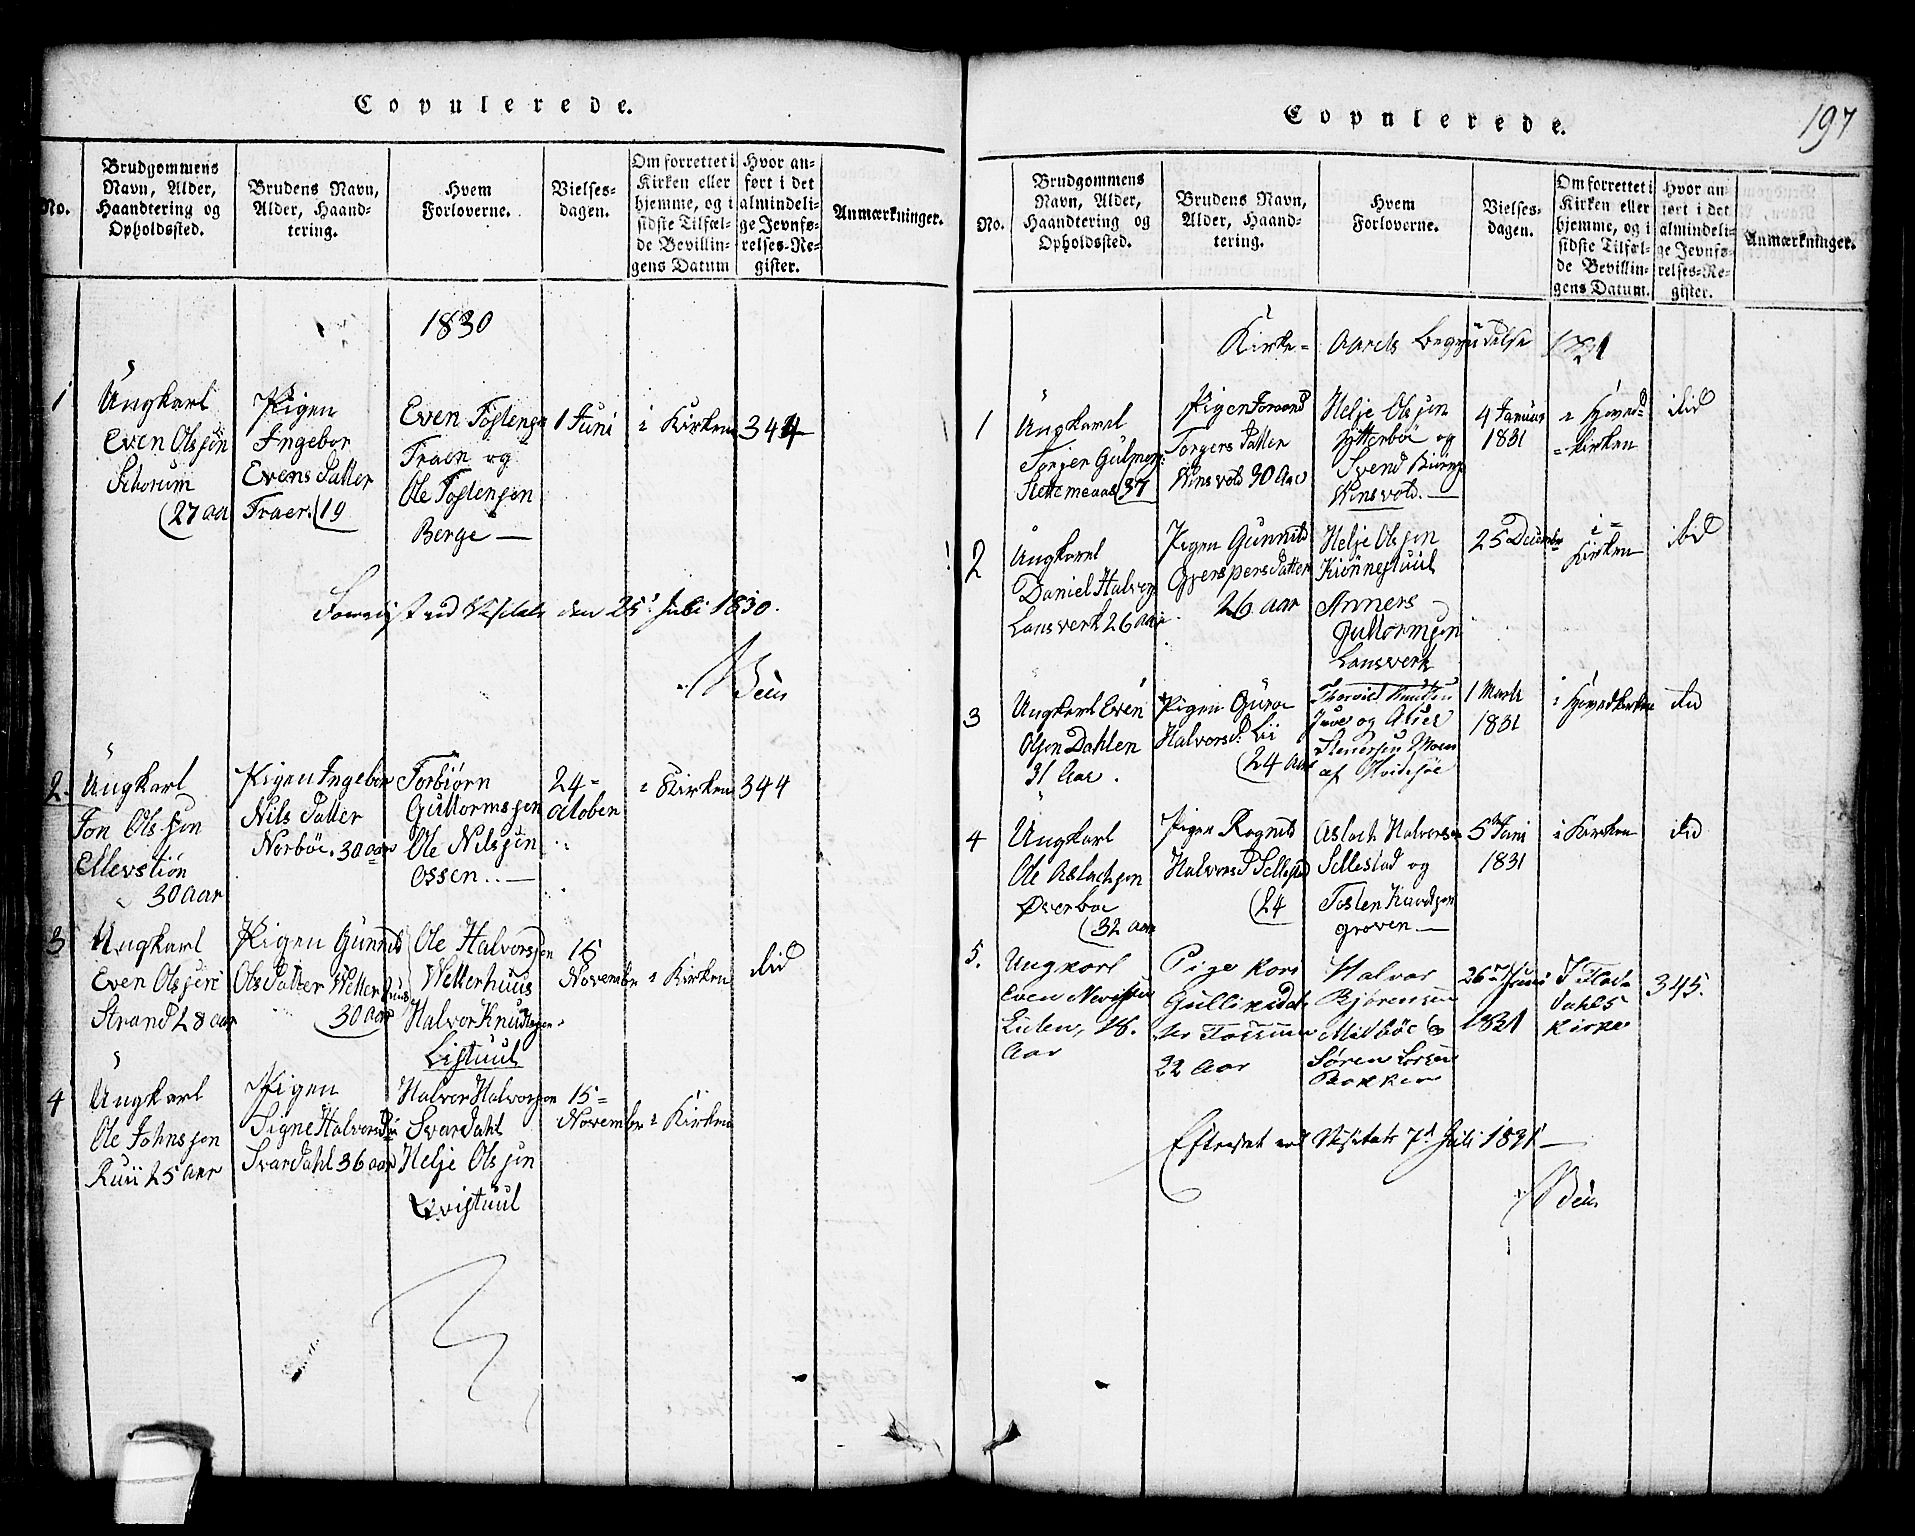 Copulerede.
No.
Brudgommens
Navn, Alder,
Haandtering og
Opholdssted.
Brudens Navn,
Alder, Haand-
tering.
Hvem
Forloverne.
Vielses-
dagen.
Om forrettet i
Kirken eller
hjemme, og i
sidste Tilfæl-
de Bevillin-
gens Datum
Hvor an-
ført i det
almindeli-
ge Jevnfø-
relses-Re-
gister.
Anmærkninger.
1830
1
Ungkarl
Even Olssøn
27 aar
Pigen
Ingebor
Evens Datter
Traen 19
Even Tostensen
Traen og
Ole Tostensen
Berge
1 Juni
i Kirken
344
Foreviist ved Visitats den 25 Juli 1830.
2.
Ungkarl
Jon Olssøn
Ellevstiøn
30 aar
Pigen Ingebor
Nils Datter
Norbøe. 30 aar
Torbiørn
Guttormssøn
Ole Nilssøn
Ossen
24
October
i Kirken
344
3
Ungkarl
Even Olssøn
Strand 28 aar
Pigen Gunnild
Ols Datter Wetterhuus
30 aar
Ole Halvorssøn
Wetterhuus
Halvor Knudssøn
Listuul
15
November
i Kirken
ibid
4
Ungkarl
Ole Johnssøn
Ruii 25 aar
Pigen
Signe Halvorsd
Svardahl 36 aar
Halvor Halvorssøn
Svardahl
Helje Olssøn
Qvistuul
15
November
i Kirken
Copulerede.
197
No.
Brudgommens
Navn, Alder,
Haandtering og
Opholdssted.
Brudens Navn,
Alder, Haand-
tering.
Hvem
Forloverne.
Vielses-
dagen.
Om forrettet i
Kirken eller
hjemme, og i
sidste Tilfæl-
de Bevillin-
gens Datum.
Hvor an-
ført i det
almindeli-
ge Jevnfø-
relses-Re-
gister.
Anmærkninger.
Kirke- Aarets Begyndelse 1831
1
Ungkarl
37
Pigen
Torgers Datter
Kinsvold 30 Aar
Helje Olssøn
Ytterbøe og
Svend
Kinsvold.
4 Januar
1831
i Hoved-
kirken
ibid
2
Ungkarl
Daniel Halvors
Lansverk 26 aar
Pigen Gunnild
26 aar
Helje Olssøn
Kiønnestuul
Anners
Guttormssøn
Lansverk
25 December
i
Kirken
ibid
3
Ungkarl Even
Olsen Dahlen
31 Aar.
Pigen Guroe
Halvorsd. Lii
24 aar
Knudsen
Juve og Asier
Moen
af Hvidesøe
1 Marts
1831
i Hovedkirken
ibid
4
Ungkarl
Ole Aslachsen
Øverboe
32 aar
Pigen Ragnild
Halvorsd Sellestad
24
Aslach Halvorsen
Sellestad og
Tosten Knudssøn
Groven
5 Juni
1831
i Kirken
ibid
5.
Ungkarl
Even
Aar
Pige Kari
Gulliksdat-
ter
22 Aar
Halvor
Bjørensen
Midbøe &
Søren Larsen
Bakken
26 Juni
1831
I Flat-
dahls
Kirke
345.
Efterseet ved Visitats 7d Juli 1831